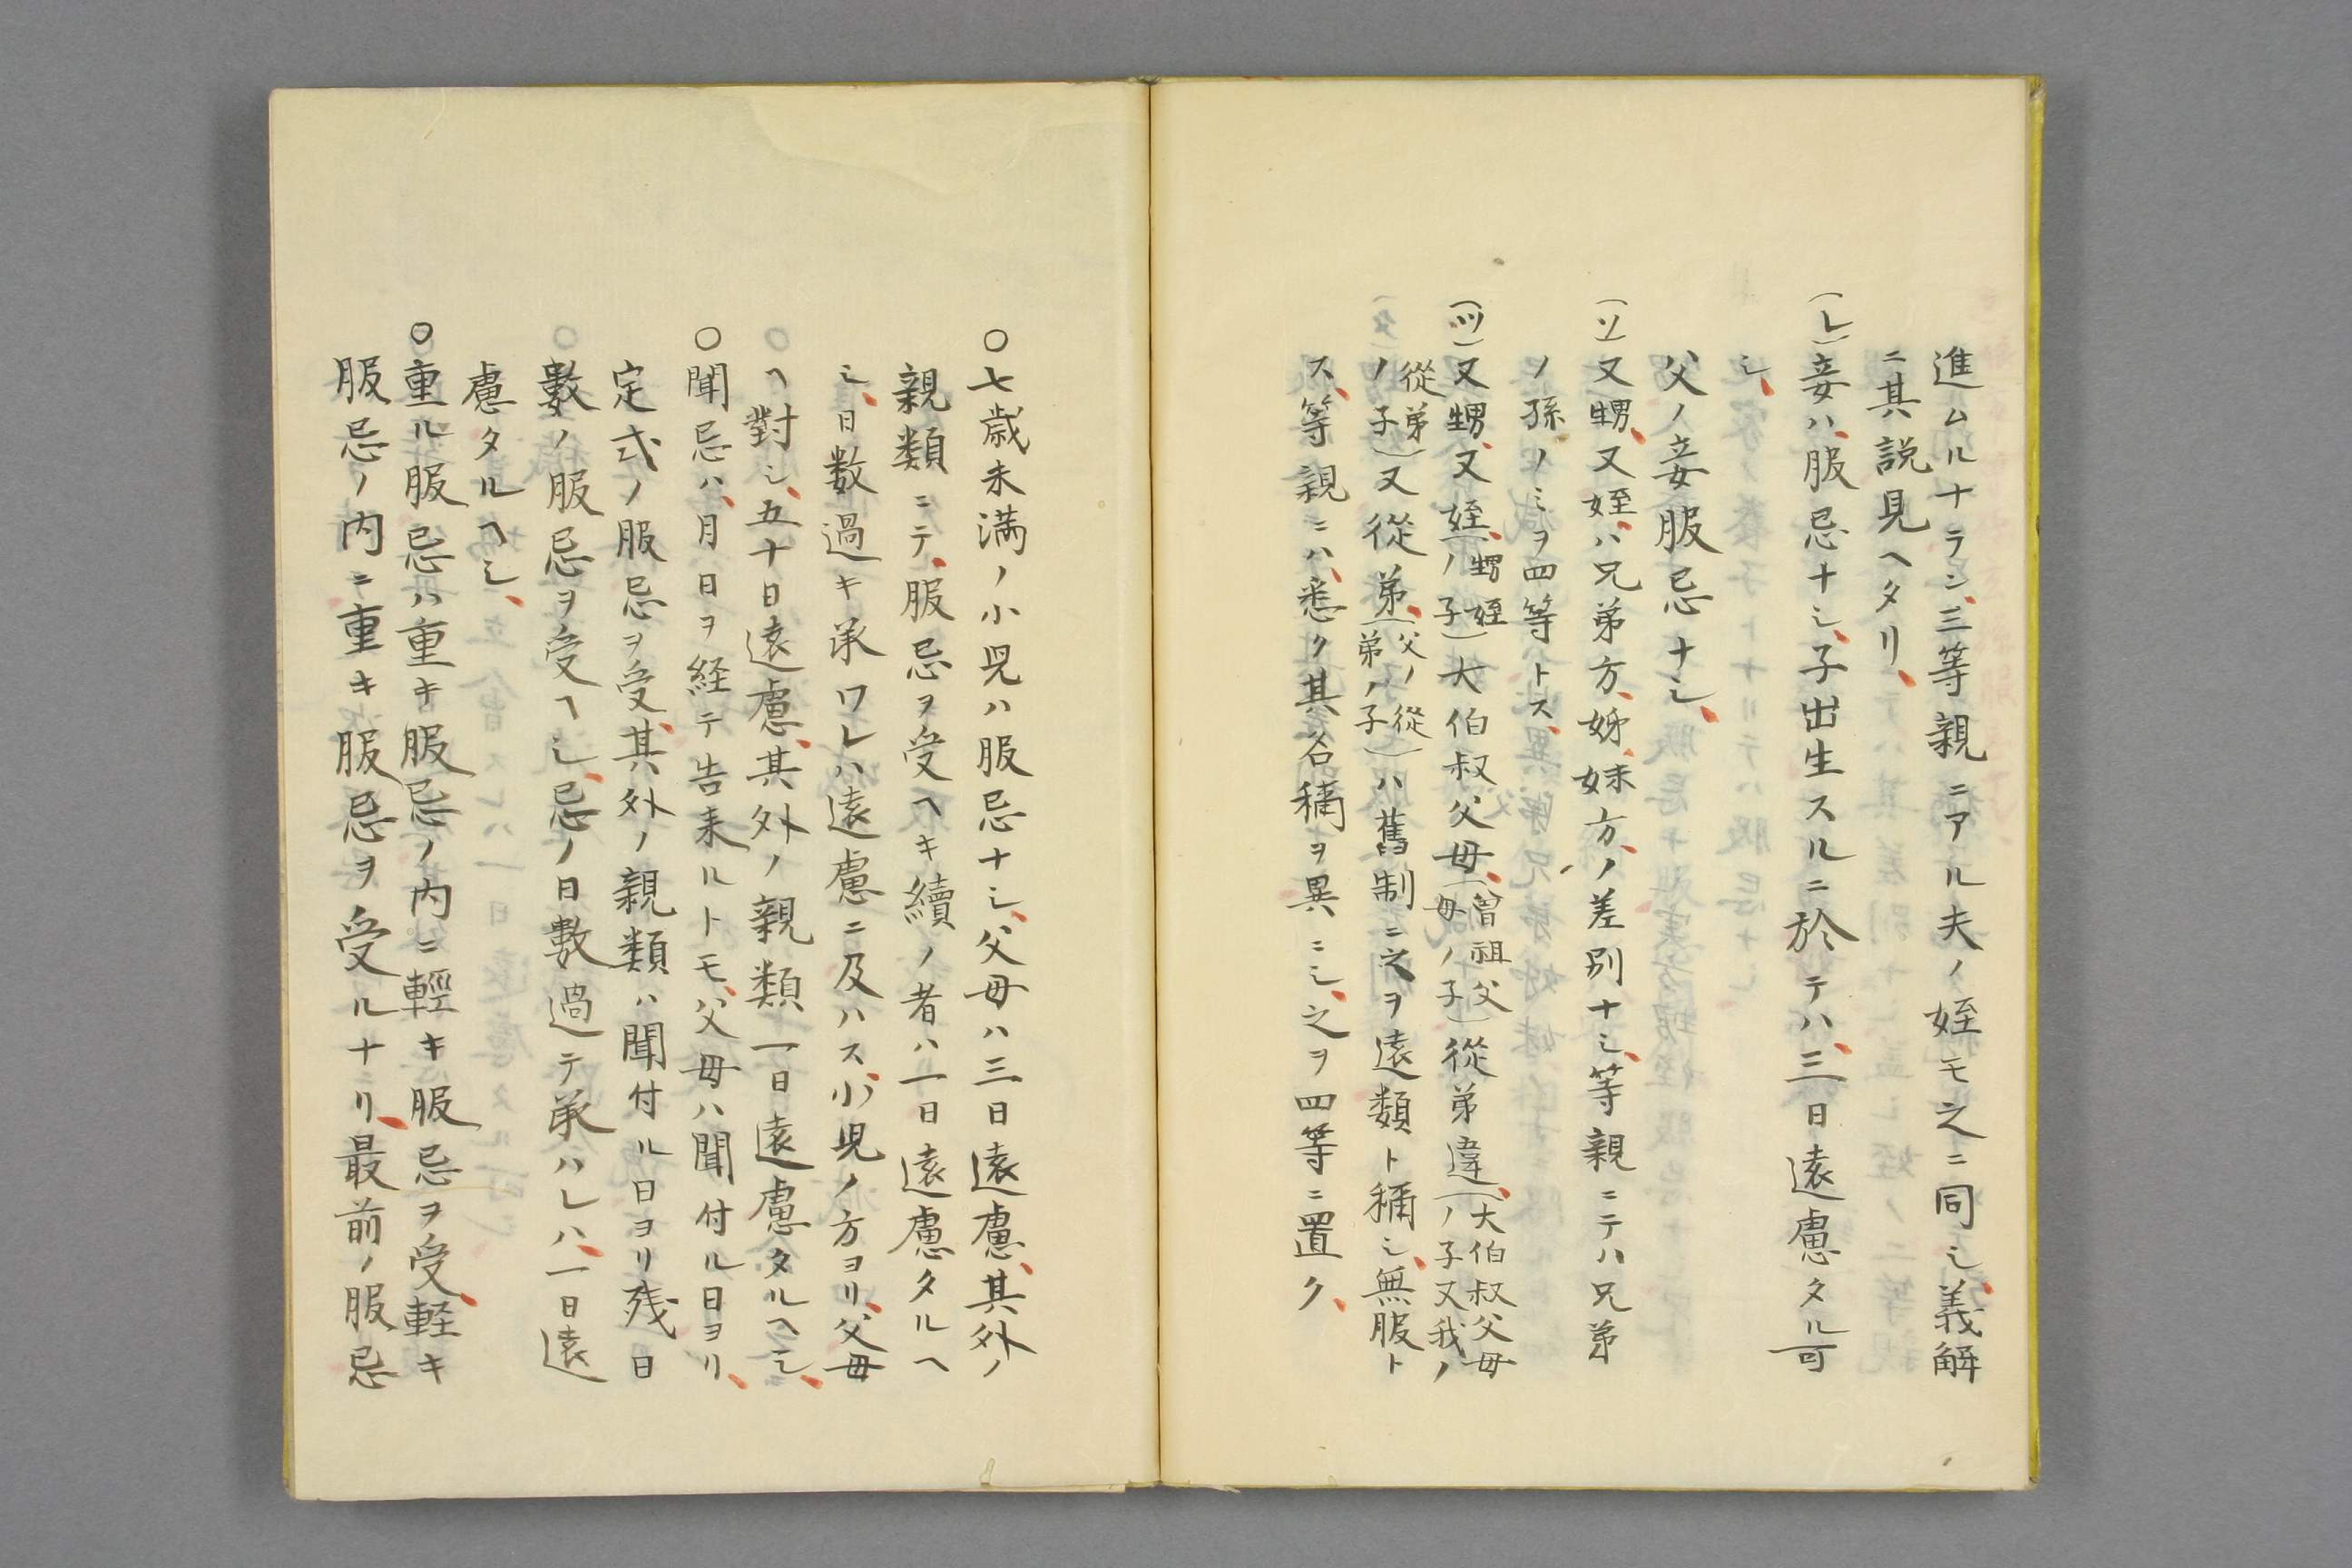 進ムルナラン、三等親ニアル夫ノ姪モ之ニ同シ、義解
ニ其説見ヘタリ、
(レ)妾ハ、服忌ナシ、子出生スルニ於テハ、三日遠慮タル可
シ、
父ノ妾服忌ナシ、
(ソ)又甥、又姪、ハ兄弟方、姊、妹方、ノ差別ナシ、等親ニテハ兄弟
ノ孫ノミヲ四等トス、
(ツ)又甥、又姪、(甥姪ノ子)大伯叔父母、(曾祖父母ノ子)從弟違、(大伯叔父母ノ子又我ノ
從弟ノ子)又從弟、(父ノ從弟ノ子)ハ舊制ニ之ヲ遠類ト稱シ、無服ト
ス、等親ニハ、悉ク其名稱ヲ異ニシ、之ヲ四等ニ置ク、
○七歳未満ノ小児ハ服忌ナシ、父母ハ三日遠慮、其外ノ
親類ニテ、服忌ヲ受ヘキ續ノ者ハ一日遠慮タルヘ
シ、日数過キ承ワレハ遠慮ニ及ハス、小児ノ方ヨリ、父母
ヘ對シ、五十日遠慮、其外ノ親類一日遠慮タルヘシ、
○聞忌ハ、月日ヲ経テ告来ルトモ、父母ハ聞付ル日ヨリ、
定式ノ服忌ヲ受、其外ノ親類ハ聞付ル日ヨリ残日
數ノ服忌ヲ受ヘシ、忌ノ日數過テ承ハレハ、一日遠
慮タルヘシ、
○重ル服忌ハ重キ服忌ノ内ニ輕キ服忌ヲ受、軽キ
服忌ノ内ニ重キ服忌ヲ受ルナリ、最前ノ服忌